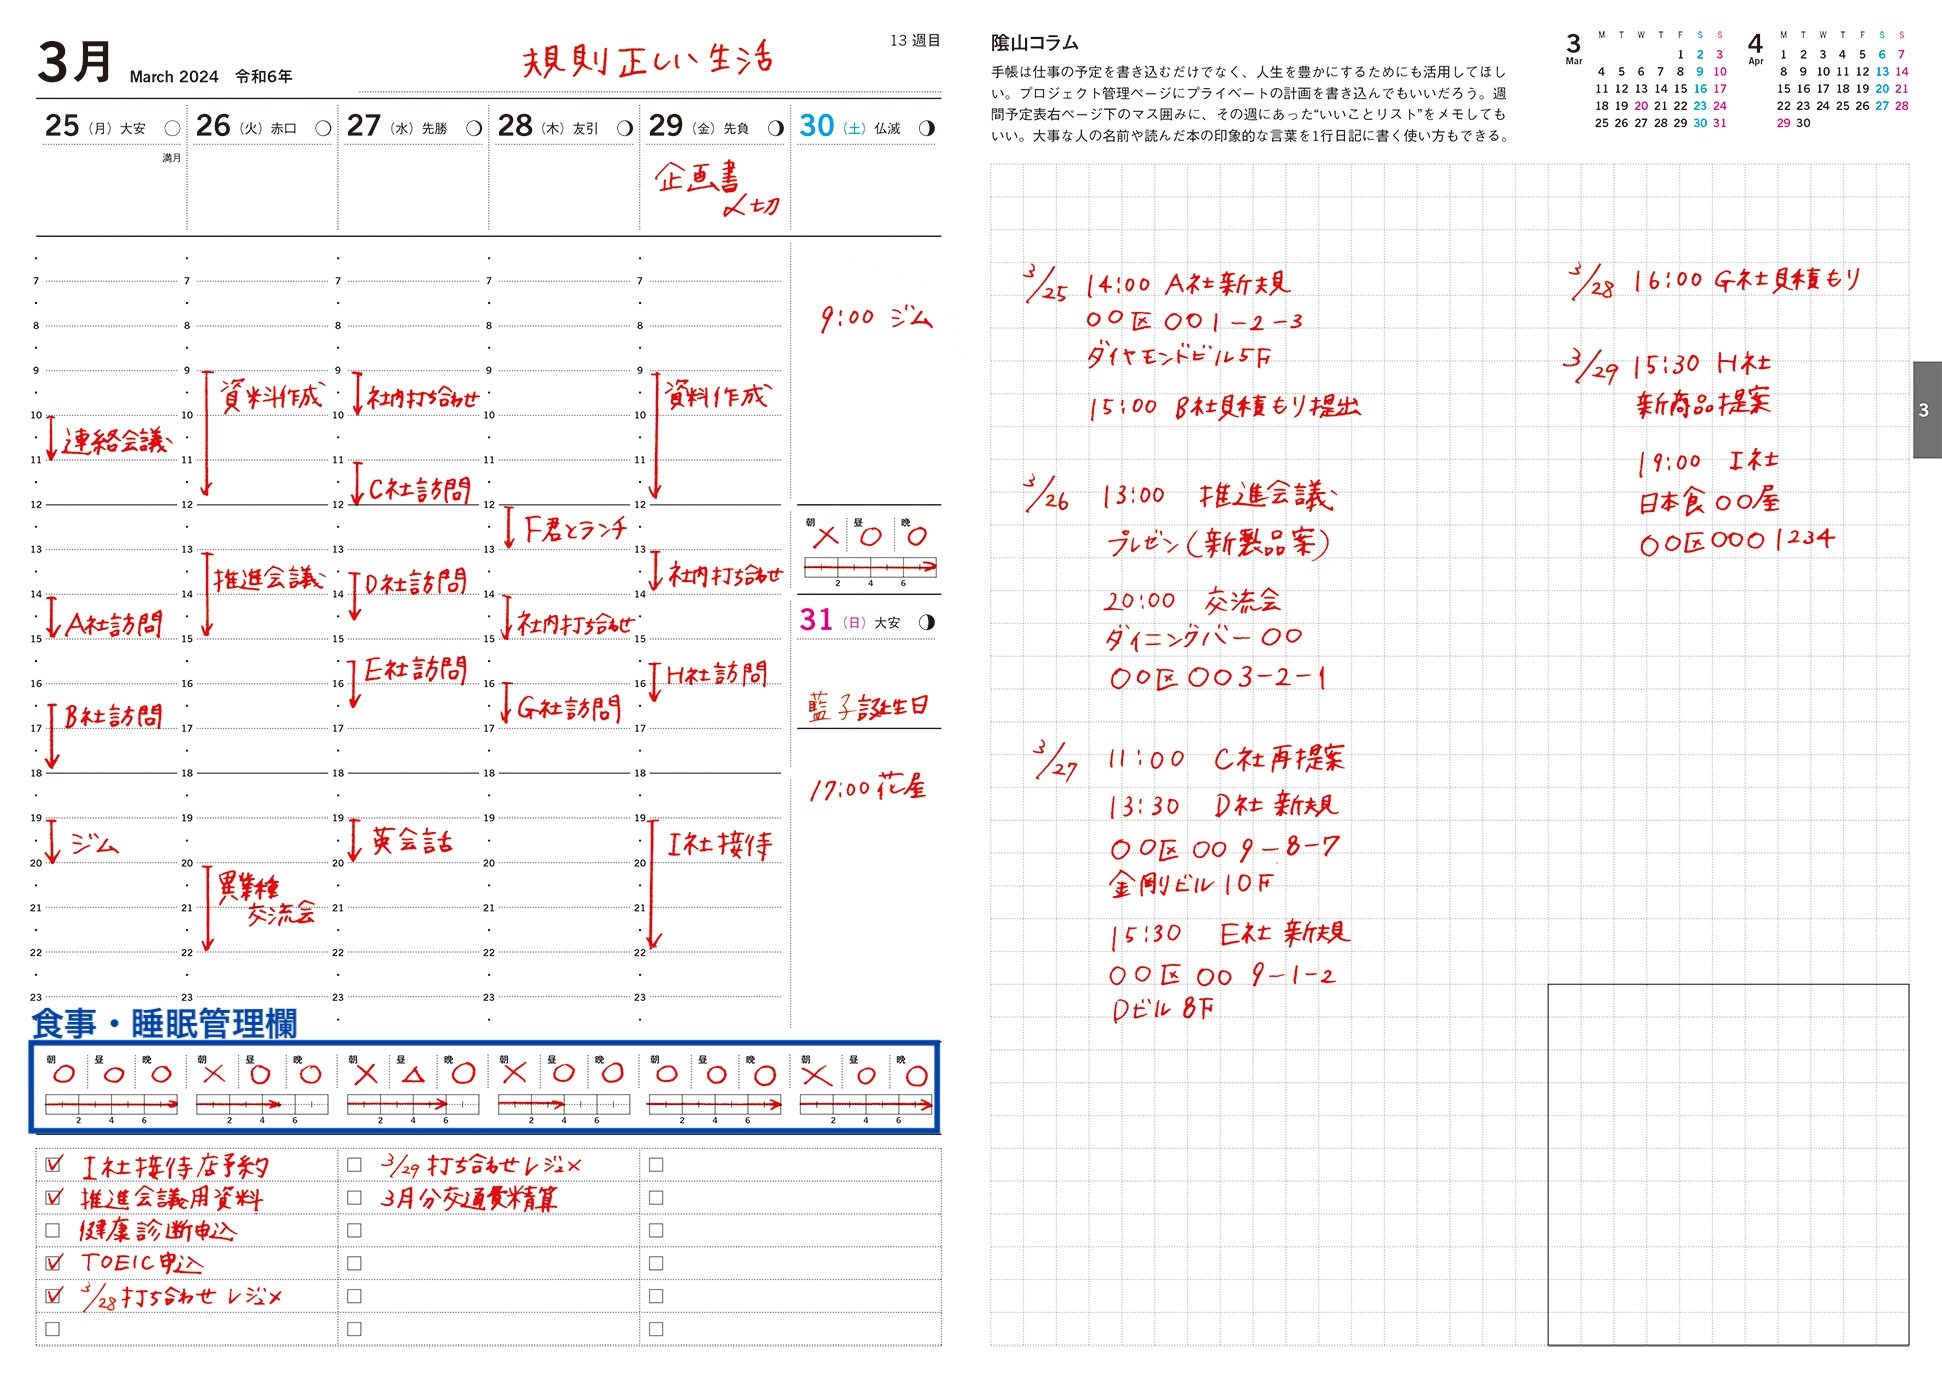 3月 March 2024 令和6年
規則正しい生活
13 週目
25（月）大安
満月
26（火）赤口
27（水）先勝
28（木）友引
29（金）先負
企画書
〆切
30（土）仏滅
7
8
9
10
11
12
13
14
15
16
17
18
19
20
21
22
23
連絡会議
A社訪問
B社訪問
ジム
7
8
9
10
11
12
13
14
15
16
17
18
19
20
21
22
23
資料作成
推進会議
異業種
交流会
7
8
9
10
11
12
13
14
15
16
17
18
19
20
21
22
23
社内打ち合わせ
C社訪問
D社訪問
E社訪問
英会話
7
8
9
10
11
12
13
14
15
16
17
18
19
20
21
22
23
F君とランチ
社内打ち合わせ
G社訪問
7
8
9
10
11
12
13
14
15
16
17
18
19
20
21
22
23
資料作成
社内打ち合わせ
H社訪問
I社接待
9:00 ジム
朝 昼 晩
× ○ ○
2 4 6
31（日）大安
藍子誕生日
17:00 花屋
食事・睡眠管理欄
朝 昼 晩 朝 昼 晩 朝 昼 晩 朝 昼 晩 朝 昼 晩 朝 昼 晩
○ ○ ○ × ○ ○ × △ ○ × ○ ○ ○ ○ ○ × ○ ○
2 4 6 2 4 6 2 4 6 2 4 6 2 4 6 2 4 6
I社接待店予約
推進会議用資料
健康診断申込
TOEIC申込
3/28打ち合わせ レジュメ
3/29打ち合わせレジュメ
3月分交通費精算
陰山コラム
手帳は仕事の予定を書き込むだけでなく、人生を豊かにするためにも活用してほし
い。プロジェクト管理ページにプライベートの計画を書き込んでもいいだろう。週
間予定表右ページ下のマス囲みに、その週にあった“いいことリスト”をメモしても
いい。大事な人の名前や読んだ本の印象的な言葉を1行日記に書く使い方もできる。
3 Mar
M T W T F S S
1 2 3
4 5 6 7 8 9 10
11 12 13 14 15 16 17
18 19 20 21 22 23 24
25 26 27 28 29 30 31
4 Apr
M T W T F S S
1 2 3 4 5 6 7
8 9 10 11 12 13 14
15 16 17 18 19 20 21
22 23 24 25 26 27 28
29 30
3/25 14:00 A社新規
○○区○○1-2-3
ダイヤモンドビル5F
15:00 B社見積もり提出
3/26 13:00 推進会議
プレゼン(新製品案)
20:00 交流会
ダイニングバー○○
○○区○○3-2-1
3/27 11:00 C社再提案
13:30 D社新規
○○区○○9-8-7
金剛ビル10F
15:30 E社新規
○○区○○9-1-2
Dビル8F
3/28 16:00 G社見積もり
3/29 15:30 H社
新商品提案
19:00 I社
日本食○○屋
○○区○○○1234
3